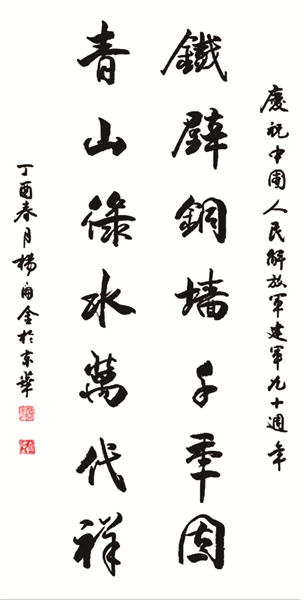 慶祝中国人民解放军建军九十週年
鐵壁銅墙千季固
青山绿水萬代祥
丁酉春月楊自金於京華